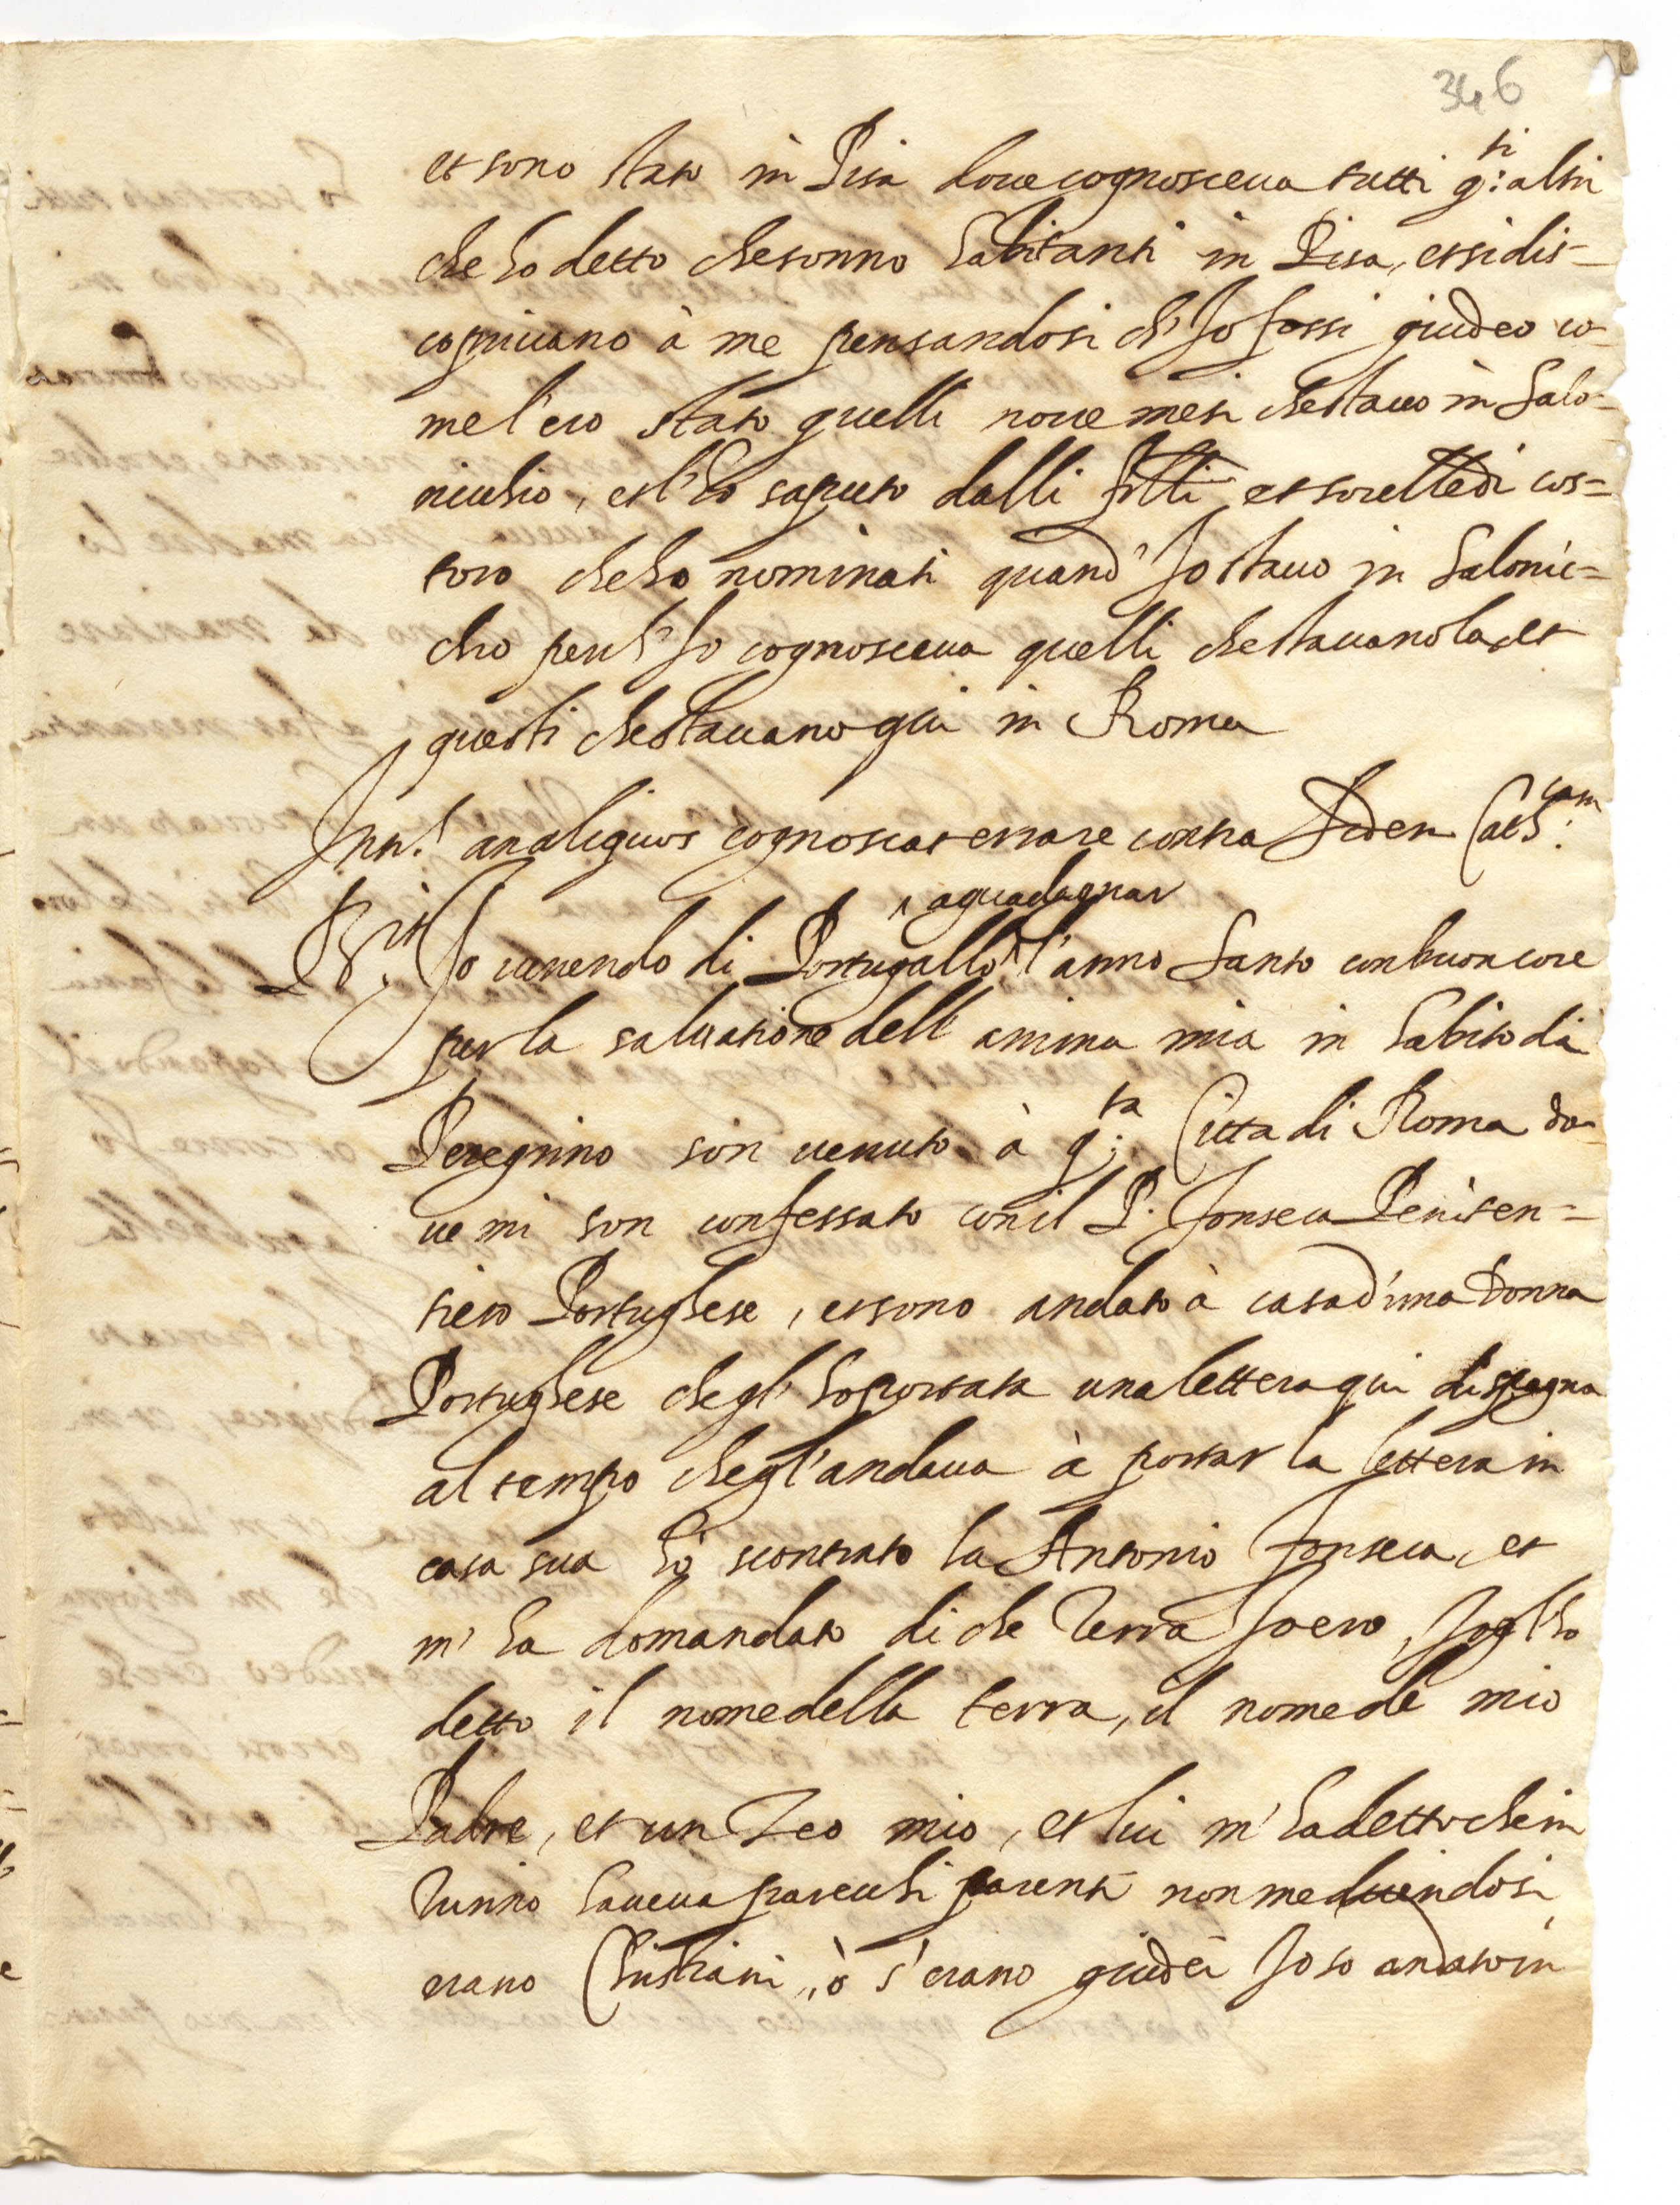 346
et sono stato in Pisa dove cognosceua tutti q:ti altri
che ho detto che sonno habitanti in Pisa, et si dis-
coprivano à me pensandosi ch'Io fossi giudeo co-
me l'ero stato quelli noue mesi che stauo in Salo-
nichio, et l'ho saputo dalli frlli et sorelle di cos=
toro che ho nominati quand' Io stauo in Salonic=
chio perch' Io cognosceua quelli che stauano la, et
questi che stauano qui in Roma
Int.s an aliquos cognoscat errare contra Fidem Cath:cam
Rit Io venendo di Portugallo a guadagnar l'anno Santo con buon core
per la saluatione dell anima mia in habito di
Peregrino son uenuto à q:ta Citta di Roma do-
ue mi son confessato con il P. Fonseca Peniten=
tiero Portughese, et sono andato à casa d'una Donna
Portughese che gl'ho portata una lettera qui di spagna
al tempo che gl'andaua à portar la lettera in
casa sua hò scontrato la Antonio Fonseca, et
m'ha domandato di che Terra Io ero, Io gl'ho
detto il nome della terra, il nome de mio
Padre, et un Zeo mio, et lui m'ha detto che in
haueua parechi parenti non me dicendosi
erano Christiani, ò s'erano giudei Io so andato in